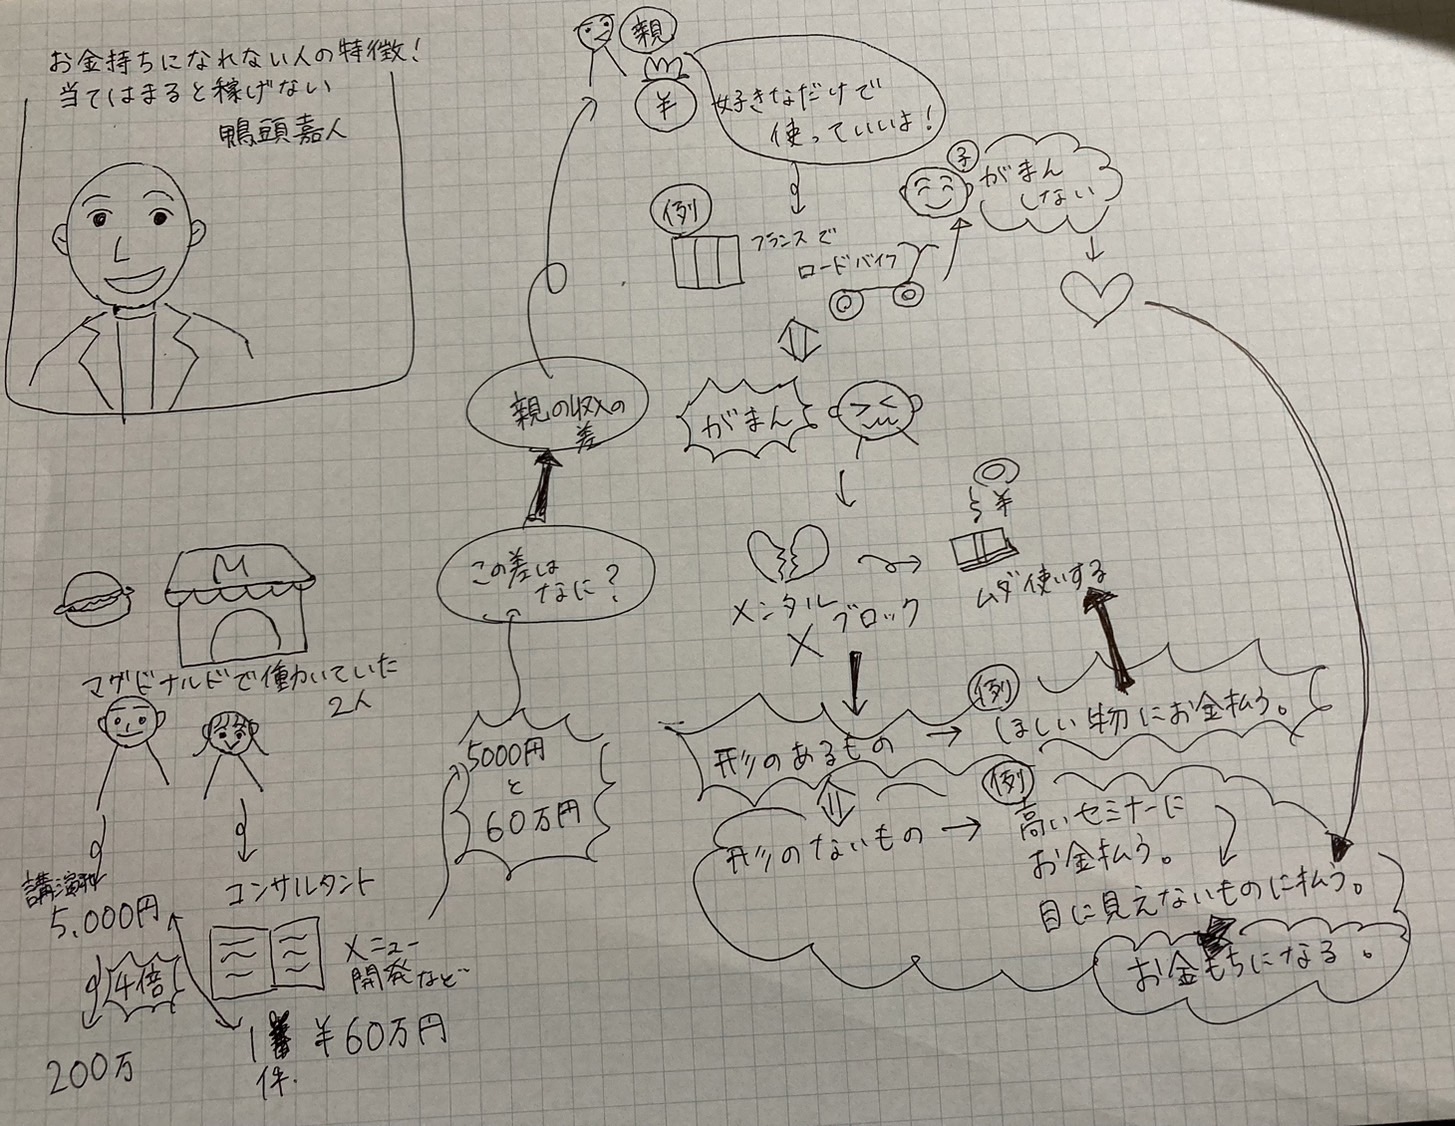 お金持ちになれない人の特徴!
当てはまると稼げない
鴨頭嘉人
親
¥
好きなだけで
使っていいよ!
例
フランスで
ロードバイク
子
がまん
しない
親の収入の
差
がまん
この差は
なに?
メンタル
ブロック
¥
ムダ使いする
M
マクドナルドで働いていた
2人
5000円
と
60万円
講演
5,000円
4倍
200万
コンサルタント
メニュー
開発など
1
件.
¥60万円
形のあるもの
例
ほしい物にお金払う。
形のないもの
例
高いセミナーに
お金払う。
目に見えないものに払う。
お金もちになる。